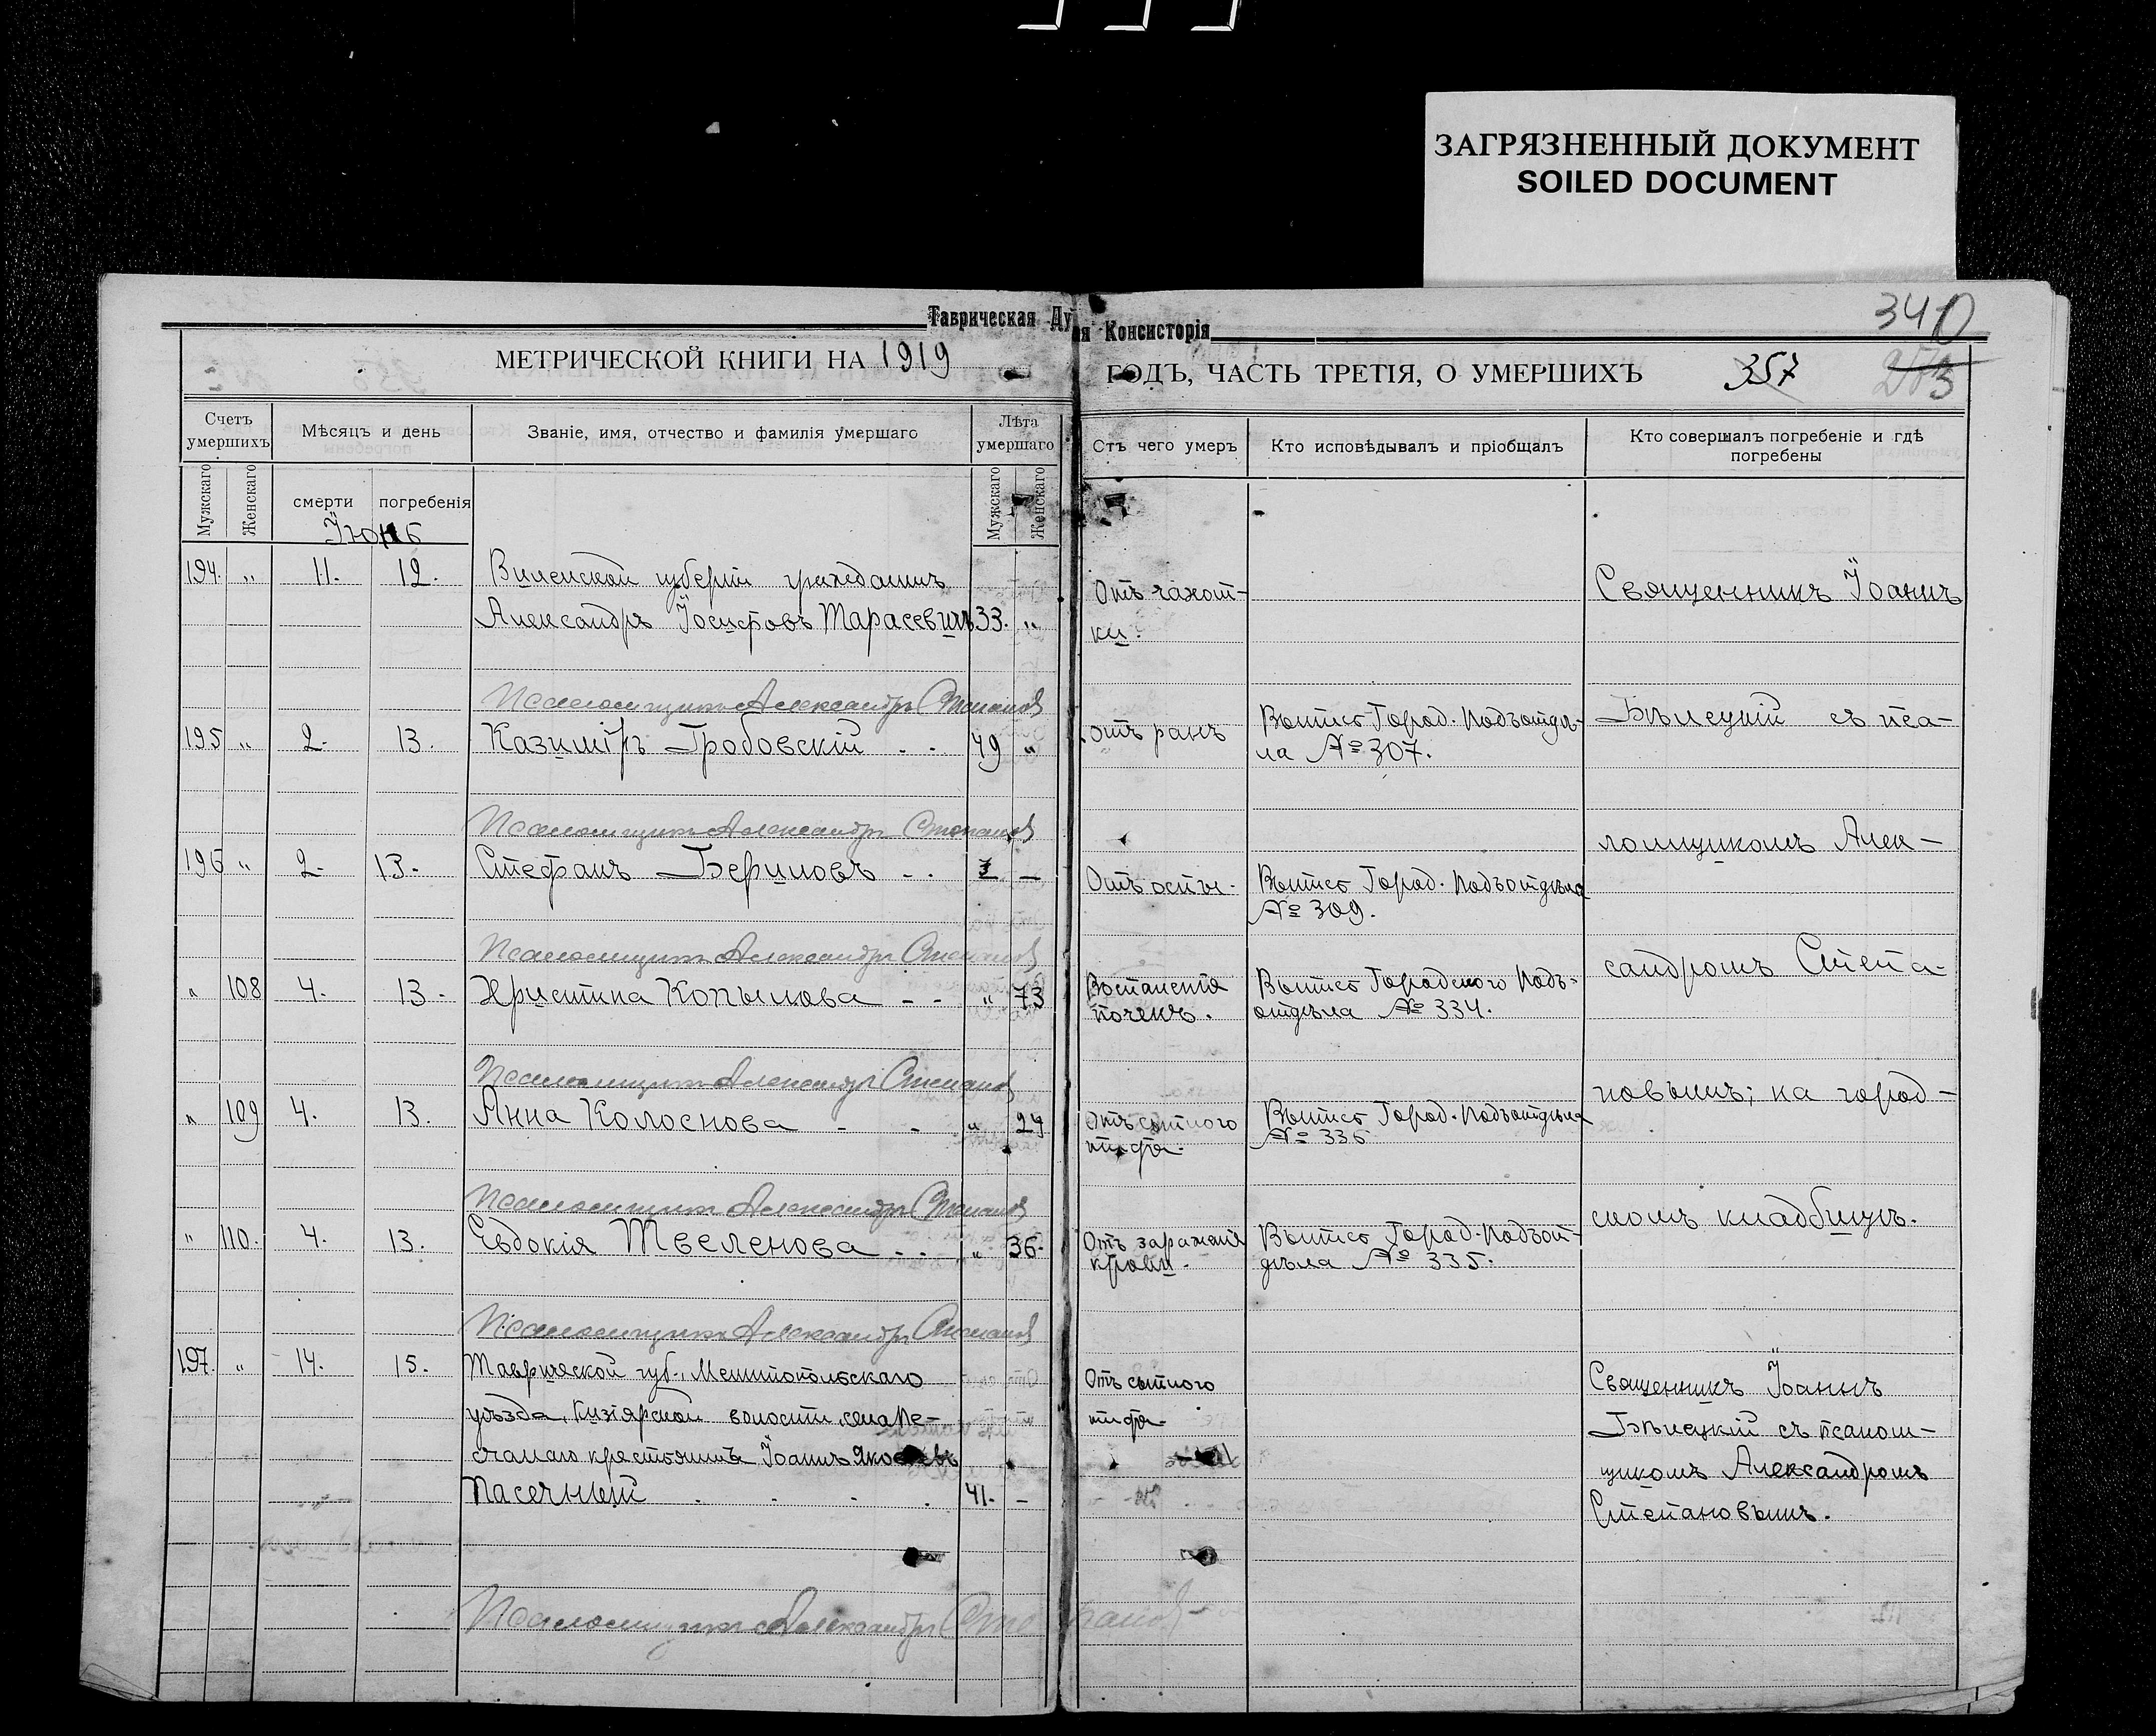 ЗАГРЯЗНЕННЫЙ ДОКУМЕНТ
SOILED DOCUMENT
Таврическая Ду
я Консисторія
340
МЕТРИЧЕСКОЙ КНИГИ НА 1919
ГОДЪ, ЧАСТЬ ТРЕТІЯ, О УМЕРШИХЪ
357
Счетъ умершихъ
Мѣсяцъ и день
Званіе, имя, отчество и фамилія умершаго
Лѣта умершаго
Отъ чего умеръ
Кто исповѣдывалъ и пріобщалъ
Кто совершалъ погребеніе и гдѣ
погребены
Мужскаго
Женскаго
смерти
погребенія
Мужскаго
Женскаго
Іюнь
194. " 11. 12. Виленской губерніи гражданинъ
Александръ Іосифовъ Тарасевичъ 33. "
Отъ чахот-
ки.
Священникъ Іоаннъ
Псаломщикъ Александръ Степановъ
195 " 2. 13. Казиміръ Гробовскій - - 49 "
отъ ранъ
Выписъ Город. Подъотдѣ-
ла № 307.
Бѣлецкій съ пса-
Псаломщикъ Александръ Степановъ
196 " 2. 13. Стефанъ Бериловъ - - —
Отъ оспы.
Выписъ Город. Подъотдѣла
№ 309.
ломщикомъ Алек-
Псаломщикъ Александръ Степановъ
" 108 4. 13. Христина Копылова - - " 73
Воспаленія
почекъ.
Выписъ Городского Подъ-
отдѣла № 334.
сандромъ Степа-
Псаломщикъ Александръ Степановъ
" 109 4. 13. Анна Колоснова - - " 29
Отъ сыпного
тифа.
Выписъ Город. Подъотдѣла
№ 336
новымъ; на город-
Псаломщикъ Александръ Степановъ
" 110. 4. 13. Евдокія Твеленова - - " 36.
Отъ зараженія
крови.
Выписъ Город. Подъот-
дѣла № 335.
скомъ кладбищѣ.
Псаломщикъ Александръ Степановъ
197. " 14. 15. Таврической губ., Мелитопольскаго
уѣзда, Кизіярской волости, села Пе-
счанаго крестьянинъ Іоаннъ Яковлевъ
Пасечный . . . . 41. -
Отъ сыпного
тифа.
Священникъ Іоаннъ
Бѣлецкій съ псалом-
щикомъ Александромъ
Степановымъ.
Псаломщикъ Александръ Степановъ